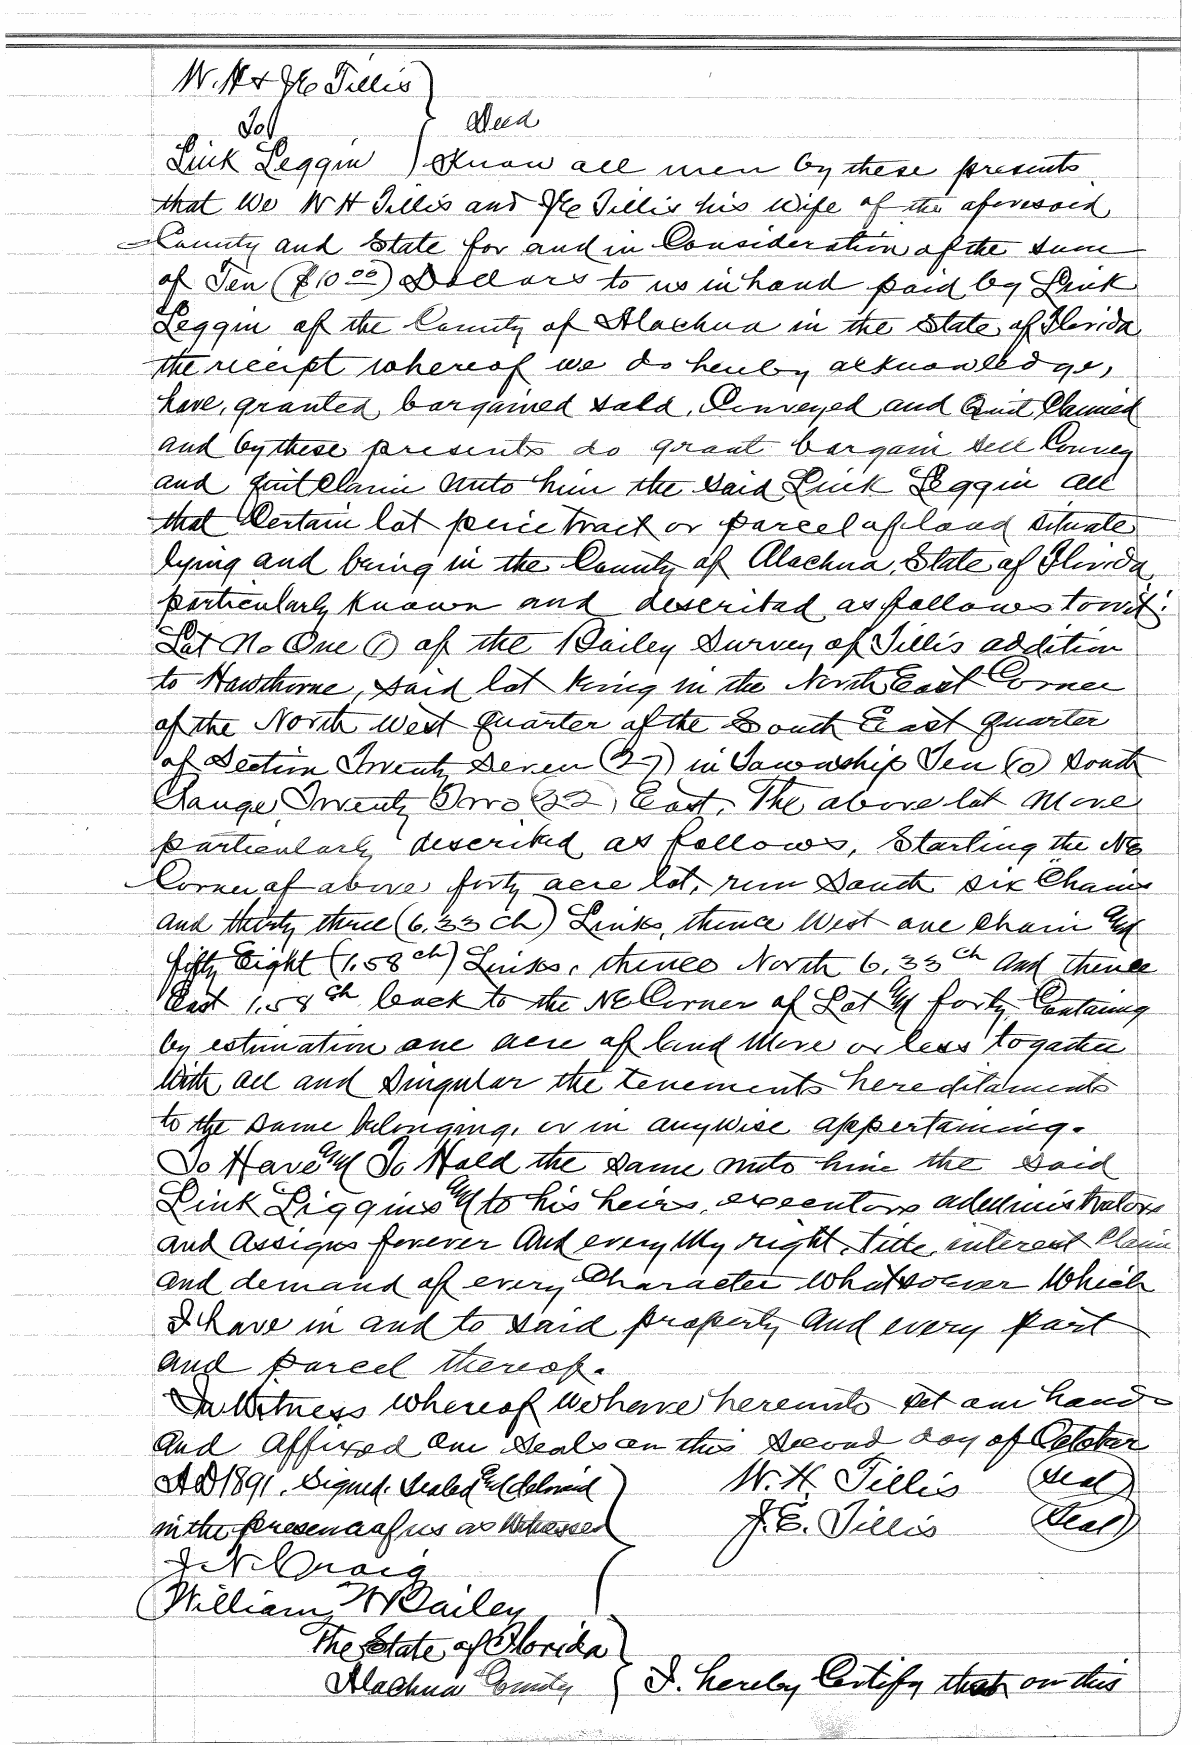 W. H & J E Tillis
To } Deed
Link Leggin } Know all men by these presents
that We W H Tillis and J E Tillis his Wife of the aforesaid
County and State for and in Consideration of the sum
of Ten ($10 00) Dollars to us in hand paid by Link
Leggin of the County of Alachua in the State of Florida
the receipt whereof we do hereby acknowledge,
have, granted, bargained sold, Conveyed and Quit Claimed
and by these presents do grant bargain sell Convey
and quit Claim unto him the said Link Leggin all
that Certain lot peice tract or parcel of land situate
lying and being in the County of Alachua, State of Florida
particularly known and described as follows to wit:
Lot No One (1) of the Bailey Survey of Tillis addition
to Hawthorne, said lot being in the North East Corner
of the North West quarter of the South East quarter
of Section Twenty Seven (27) in Township Ten (10) South
Range Twenty Two (22) East. The above lot More
particularly described as follows, Starting the NE
Corner of above forty acre lot, run South six Chains
and thirty three (6.33 ch) Links, thence West one Chain and
fifty Eight (1.58 ch) Links, thence North 6.33 ch and thence
East 1.58 ch back to the NE Corner of Lot and forty, Containing
by estimation one acre of land More or less together
With all and singular the tenements hereditaments
to the same belonging, or in anywise appertaining.
To Have and To Hold the same unto him the said
Link Liggins and to his heirs, executors administrators
and assigns forever And every My right, title, interest Claim
and demand of every Character Whatsoever Which
I have in and to said property And every part
and parcel thereof.
In Witness Whereof We have hereunto set our hands
And Affixed Our Seals on this Second day of October
AD 1891. Signed. Sealed and delivered } W. H. Tillis (Seal)
in the presence of us as Witnesses } J. E. Tillis (Seal)
J. N. Craig
William W Bailey
The State of Florida }
Alachua County } I. hereby Certify that on this